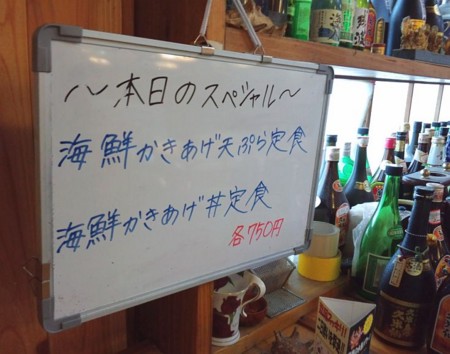 〜本日のスペシャル〜
海鮮かきあげ天ぷら定食
海鮮かきあげ丼定食
各750円